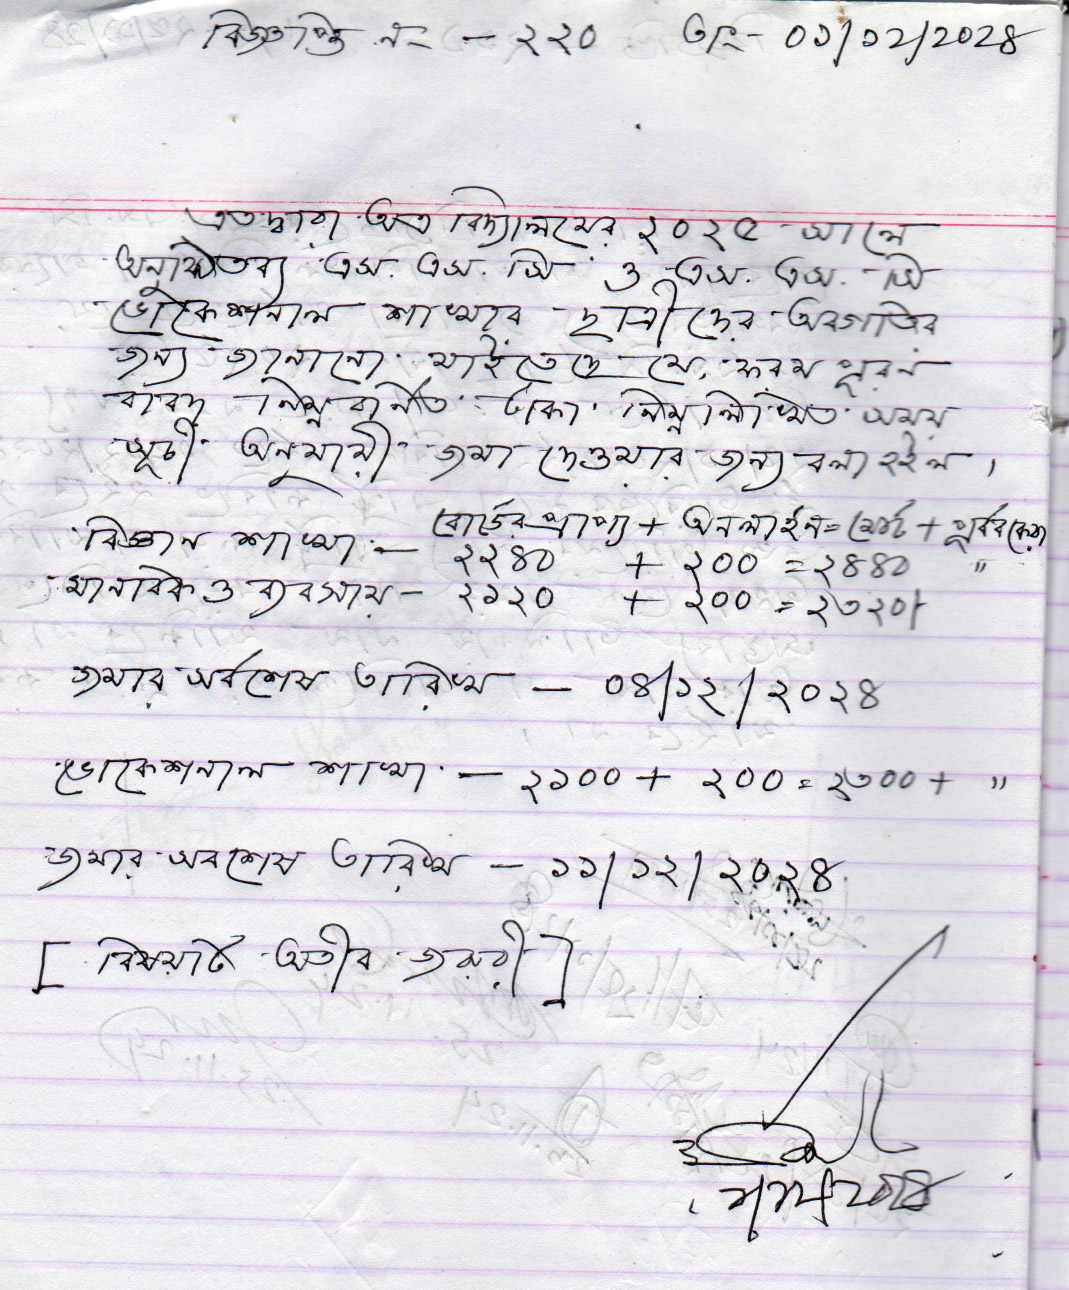 বিজ্ঞপ্তি নং - ২২০ তাং- ০১/১২/২০২৪
এতদ্বারা অত্র বিদ্যালয়ের ২০২৫ সালে
অনুষ্ঠিতব্য এস. এস. সি ও এস. এস. সি
ভোকেশনাল শাখার ছাত্রীদের অবগতির
জন্য জানানো যাইতেছে যে, ফরম পূরন
বাবদ নিম্ন বর্নিত টাকা নিম্নলিখিত সময়
সূচী অনুযায়ী জমা দেওয়ার জন্য বলা হইল।
বোর্ডের প্রাপ্য + অনলাইন = মোট + পূর্বের বকেয়া
বিজ্ঞান শাখা - ২২৪০ + ২০০ = ২৪৪০ "
মানবিক ও ব্যবসায় - ২১২০ + ২০০ = ২৩২০৲
জমার সর্বশেষ তারিখ - ০৪/১২/২০২৪
ভোকেশনাল শাখা - ২১০০ + ২০০ = ২৩০০ + "
জমার সবশেষ তারিখ - ১১/১২/২০২৪
[ বিষয়টি অতীব জরুরী ]